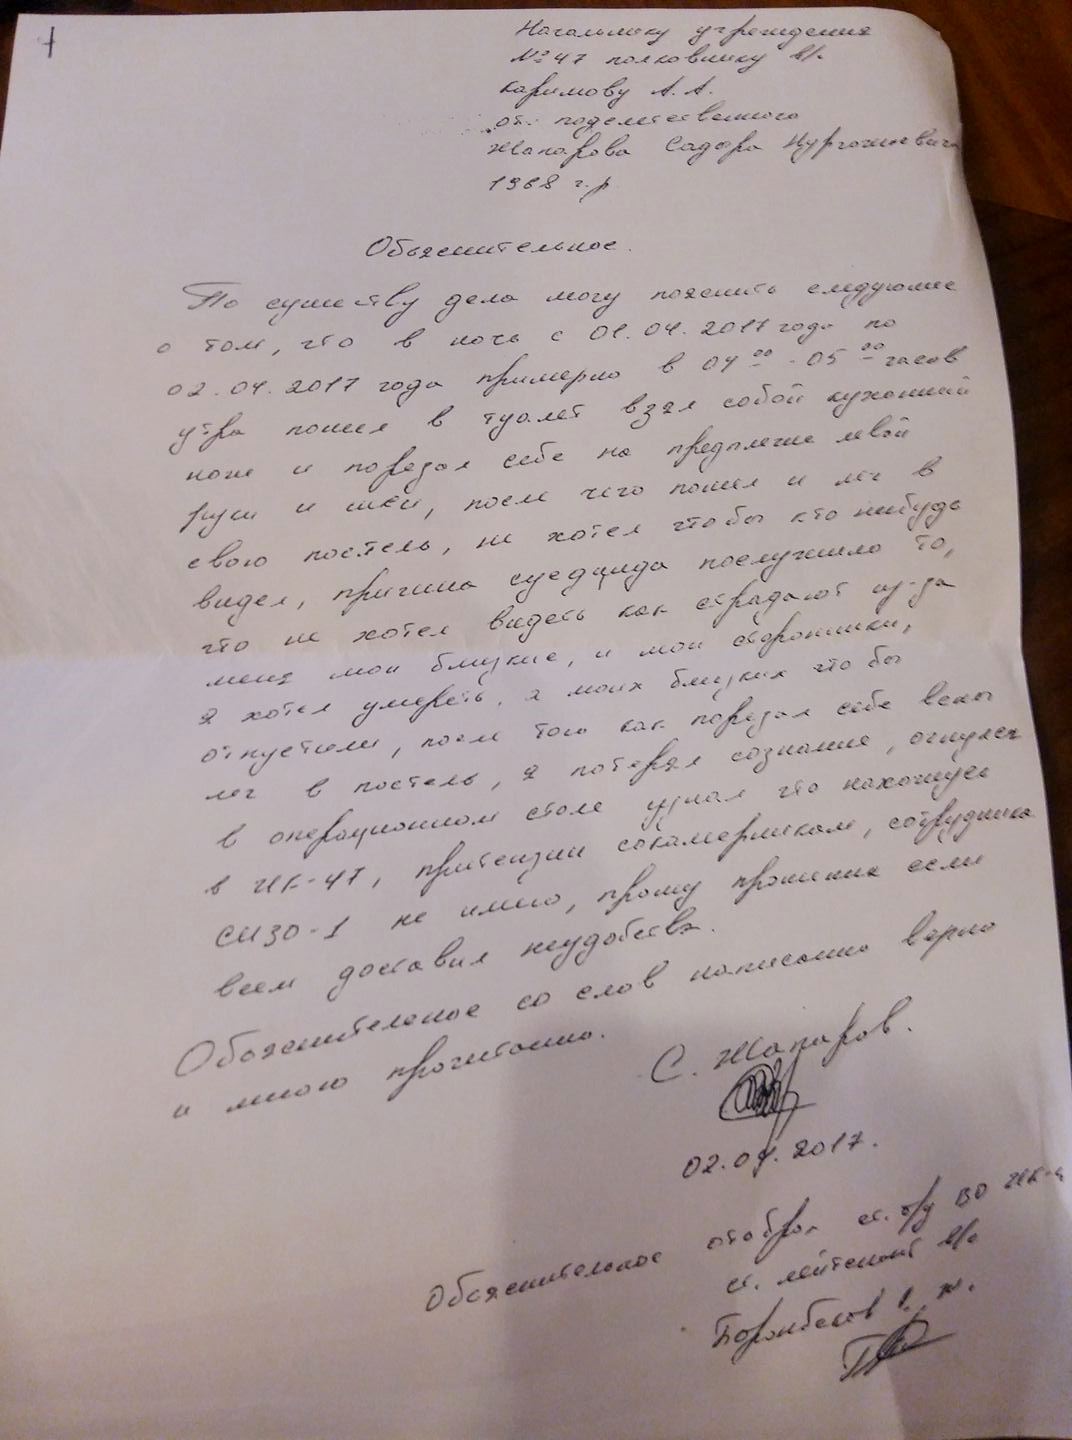 Начальнику учреждения
№47 полковнику в/с
Каримову А. А.
от подследственного
Жапарова Садыра Нургожоевича
1968 г.р
Объяснительное.
По существу дела могу пояснить следующие
о том, что в ночь с 01.04.2017 года по
02.04.2017 года примерно в 04 00 - 05 00 часов
утра пошел в туалет взял собой кухонный
нож и порезал себе на предплечие левой
руки и шеи, после чего пошел и лег в
свою постель, не хотел чтобы кто нибудь
видел, причина суецида послужило то,
что не хотел видеть как страдают из-за
меня мои близкие, и мои сторонники,
я хотел умереть, а моих близких что бы
отпустили, после того как порезал себе вены
лег в постель, я потерял сознание, очнулся
в операционном столе узнал что нахожусь
в ИК-47, притензии сокамерникам, сотрудника
СИЗО-1 не имею, прошу прощения если
всем доставил неудобства.
Объяснительное со слов написанно верно
и мною прочитанно.
С. Жапаров.
02.04.2017.
Объяснительное отобрал ст. о/у ВО ИК-4
ст. лейтенант в/с